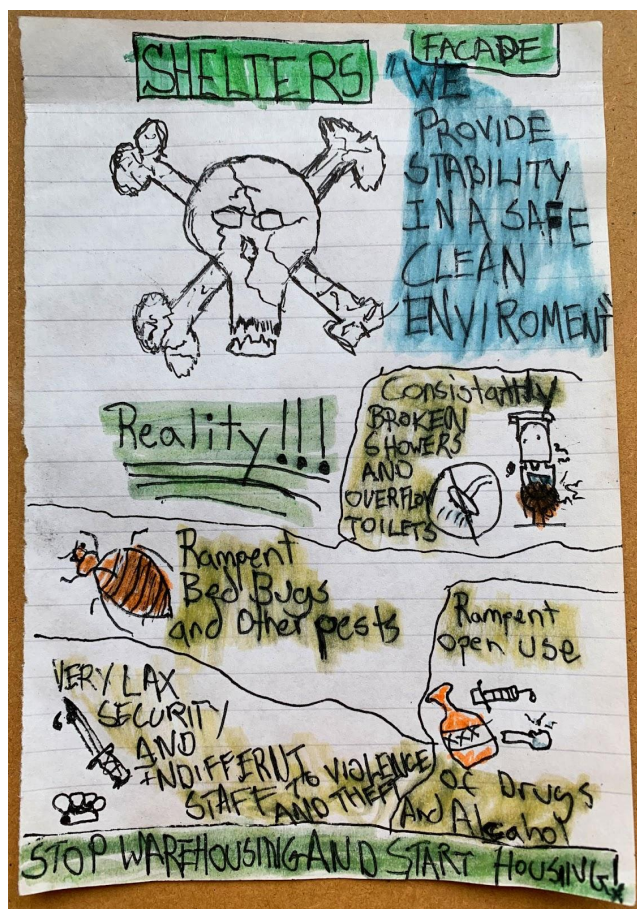 SHELTERS
FACADE
"WE
PROVIDE
STABILITY
IN A SAFE
CLEAN
ENVIROMENT"
Reality!!!
Consistantly
BROKEN
SHOWERS
AND
OVERFLOW
TOILETS
Rampent
Bed Bugs
and Other pests
Rampent
open use
XXX
of Drugs
And Alcohol
VERY LAX
SECURITY
AND
INDIFFERNT TO VIOLENCE
STAFF AND THEFT
STOP WAREHOUSING AND START HOUSING!